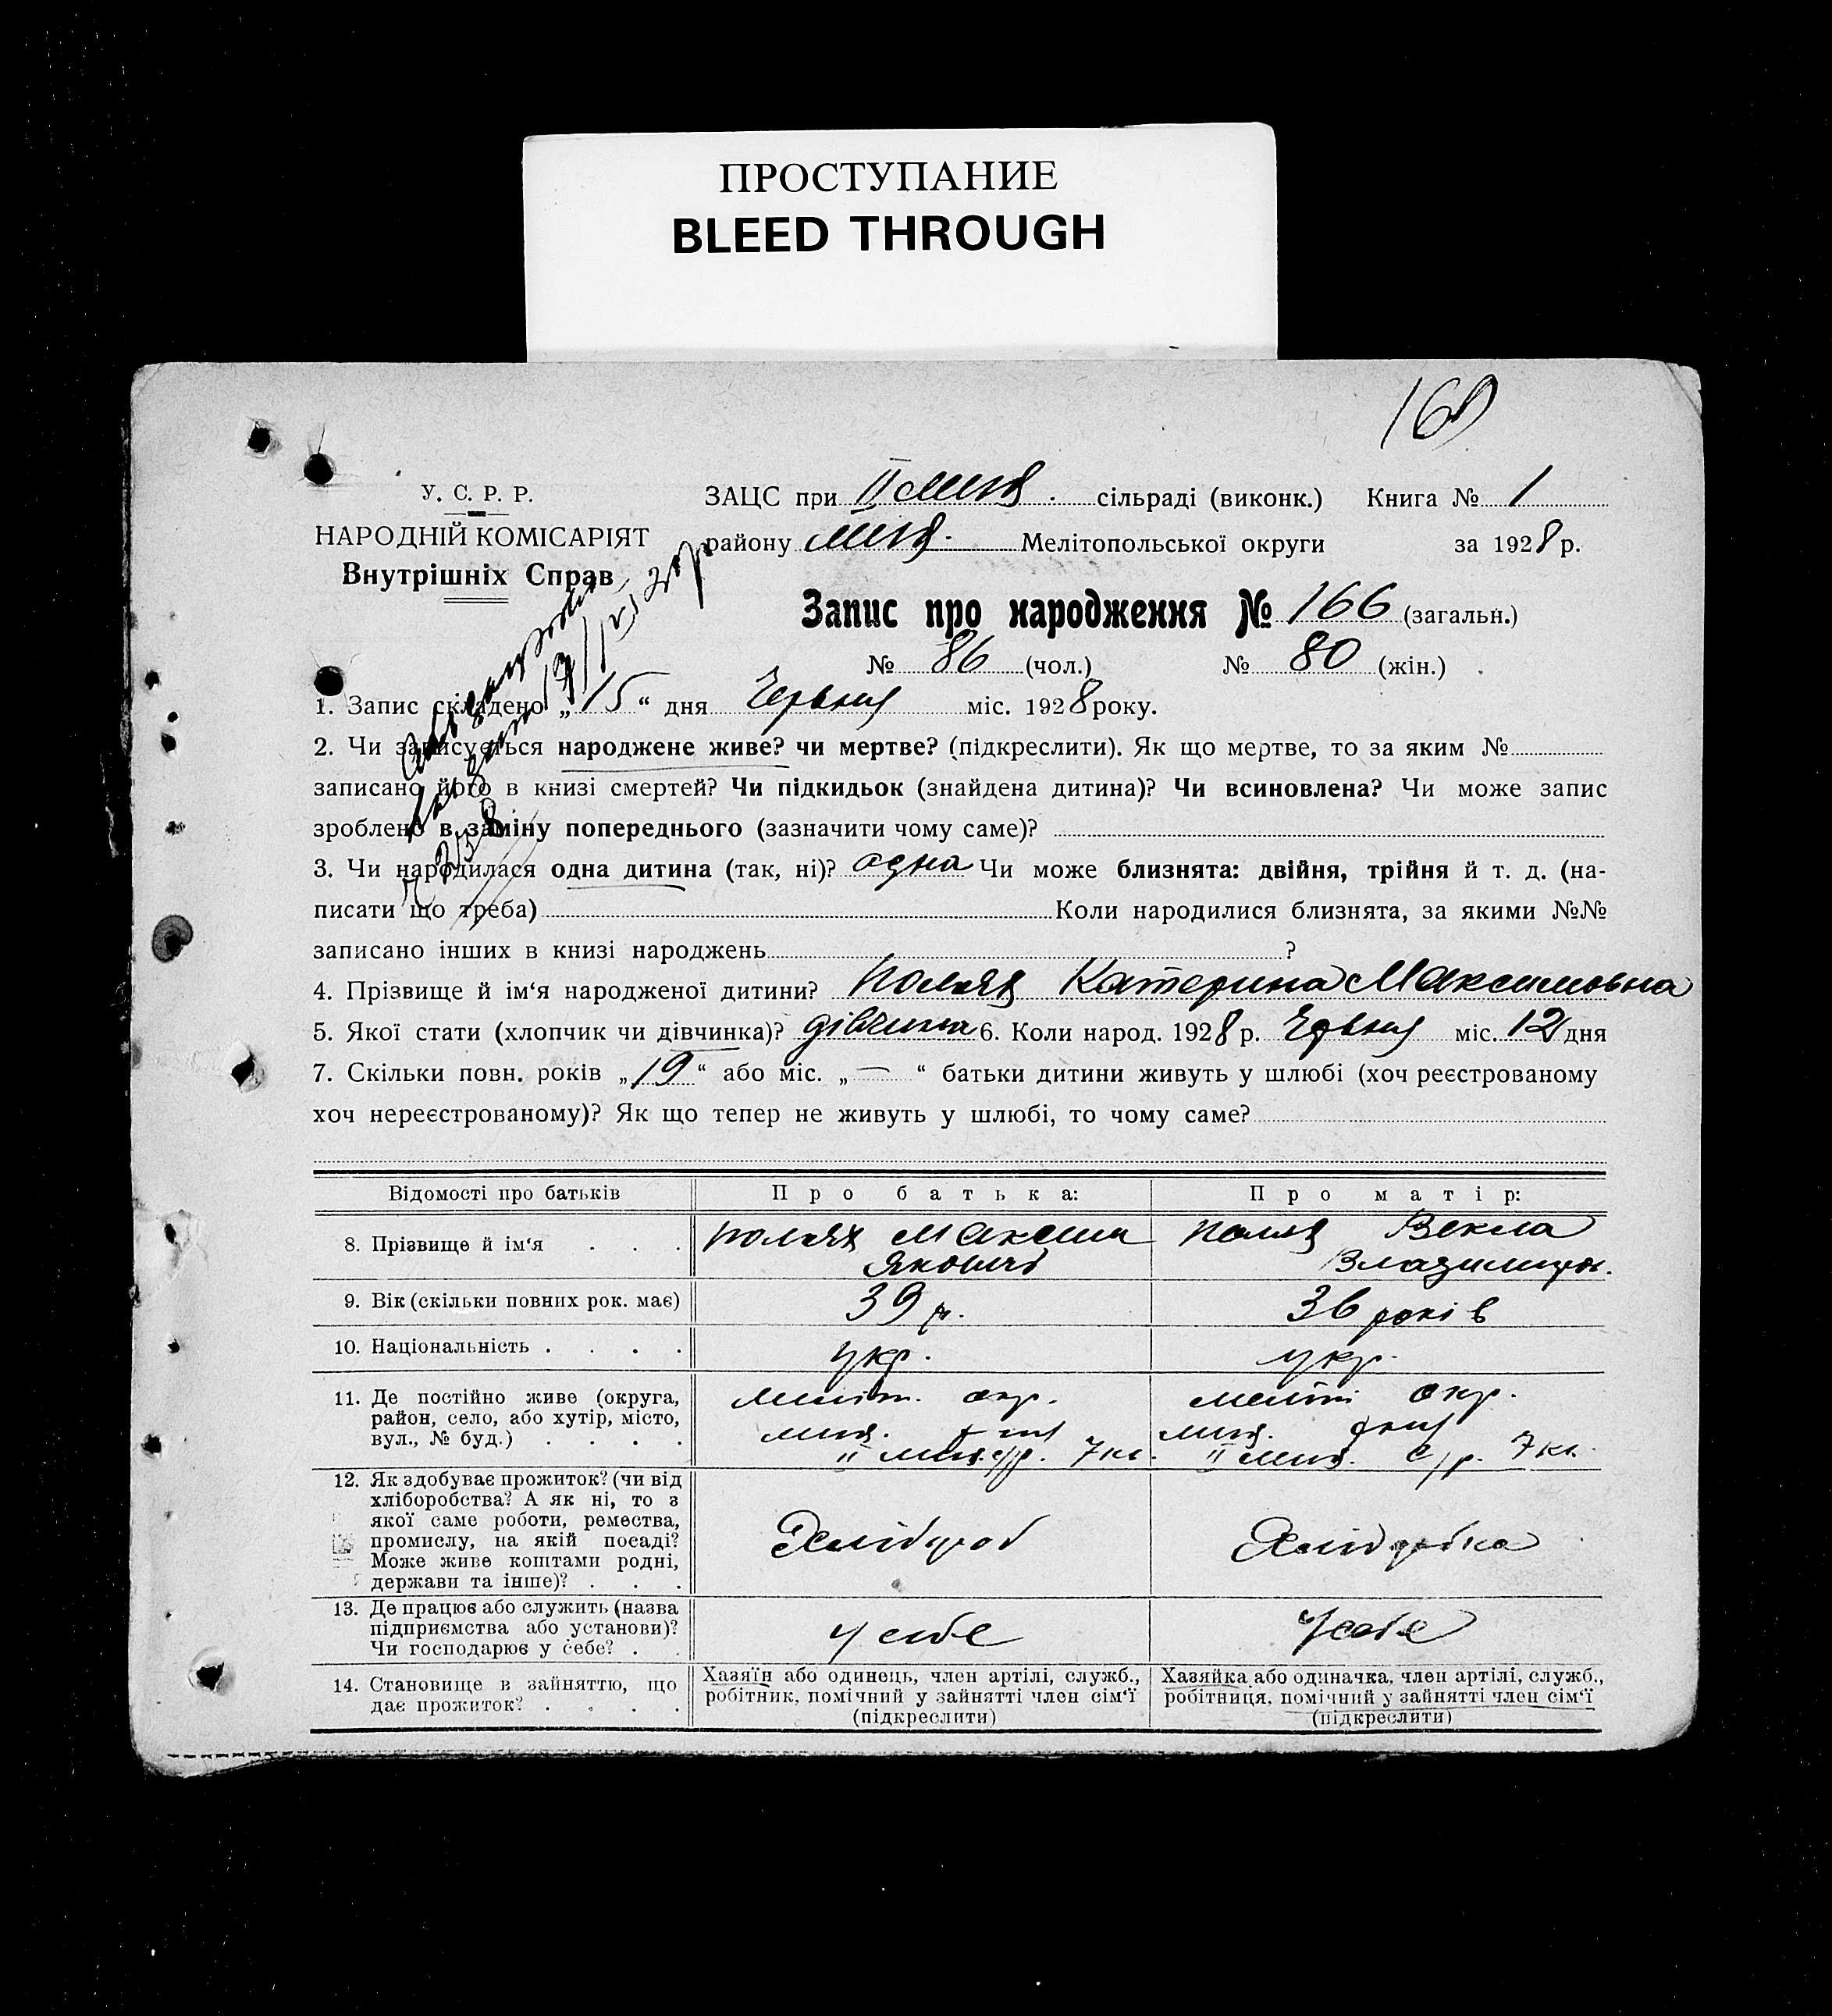 ПРОСТУПАНИЕ
BLEED THROUGH
У. С. Р. Р.
НАРОДНІЙ КОМІСАРІЯТ
Внутрішніх Справ
ЗАЦС при II сільраді (виконк.) Книга № 1
району Мелітопольської округи за 1928 р.
Запис про народження № 166 (загальн.)
№ 86 (чол.) № 80 (жін.)
1. Запис складено „15“ дня Червня міс. 1928 року.
2. Чи записується народжене живе? чи мертве? (підкреслити). Як що мертве, то за яким №
записано його в книзі смертей? Чи підкидьок (знайдена дитина)? Чи всиновлена? Чи може запис
зроблено в заміну попереднього (зазначити чому саме)?
3. Чи народилася одна дитина (так, ні)? одна Чи може близнята: двійня, трійня й т. д. (на-
писати що треба) Коли народилися близнята, за якими №№
записано інших в книзі народжень ?
4. Прізвище й ім‘я народженої дитини? Катерина Максимовна
5. Якої стати (хлопчик чи дівчинка)? дівчина 6. Коли народ. 1928 р. Червня міс. 12 дня
7. Скільки повн. років „19“ або міс. „—“ батьки дитини живуть у шлюбі (хоч реєстрованому
хоч нереєстрованому)? Як що тепер не живуть у шлюбі, то чому саме?
Відомості про батьків Про батька: Про матір:
8. Прізвище й ім‘я . . . Максим Векла
Якович Владимиров.
9. Вік (скільки повних рок. має) 39 р. 36 років
10. Національність . . . . укр. укр.
11. Де постійно живе (округа, Меліт. окр. Меліт окр.
район, село, або хутір, місто,
вул., № буд.) . . . . II с/р. II с/р.
12. Як здобуває прожиток? (чи від
хліборобства? А як ні, то з
якої саме роботи, ремества,
промислу, на якій посаді? Хлібороб Хліборобка
Може живе коштами родні,
держави та інше)? . . .
13. Де працює або служить (назва
підприємства або установи)? у себе у себе
Чи господарює у себе? .
14. Становище в зайняттю, що Хазяїн або одинець, член артілі, служб., Хазяйка або одиначка, член артілі, служб.,
дає прожиток? . . . . робітник, помічний у зайнятті член сім‘ї робітниця, помічний у зайнятті член сім‘ї
(підкреслити) (підкреслити)